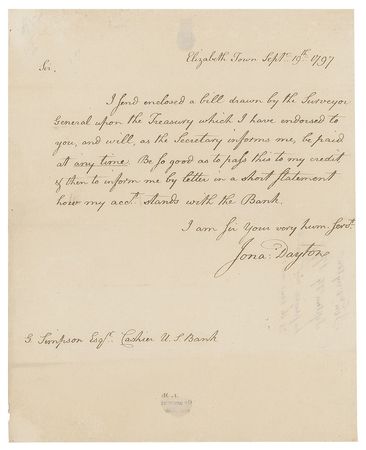 Elizabeth Town Sept.r 19th 1797
Sir,
I send enclosed a bill drawn by the Surveyor
General upon the Treasury which I have endorsed to
you, and will, as the Secretary informs me, be paid
at any time. Be so good as to pass this to my credit
& then to inform me by letter in a short statement
how my acct. stands with the Bank.
I am Sir Your very hum. Servt.
Jona: Dayton
G Simpson Esqr. Cashier U. S Bank